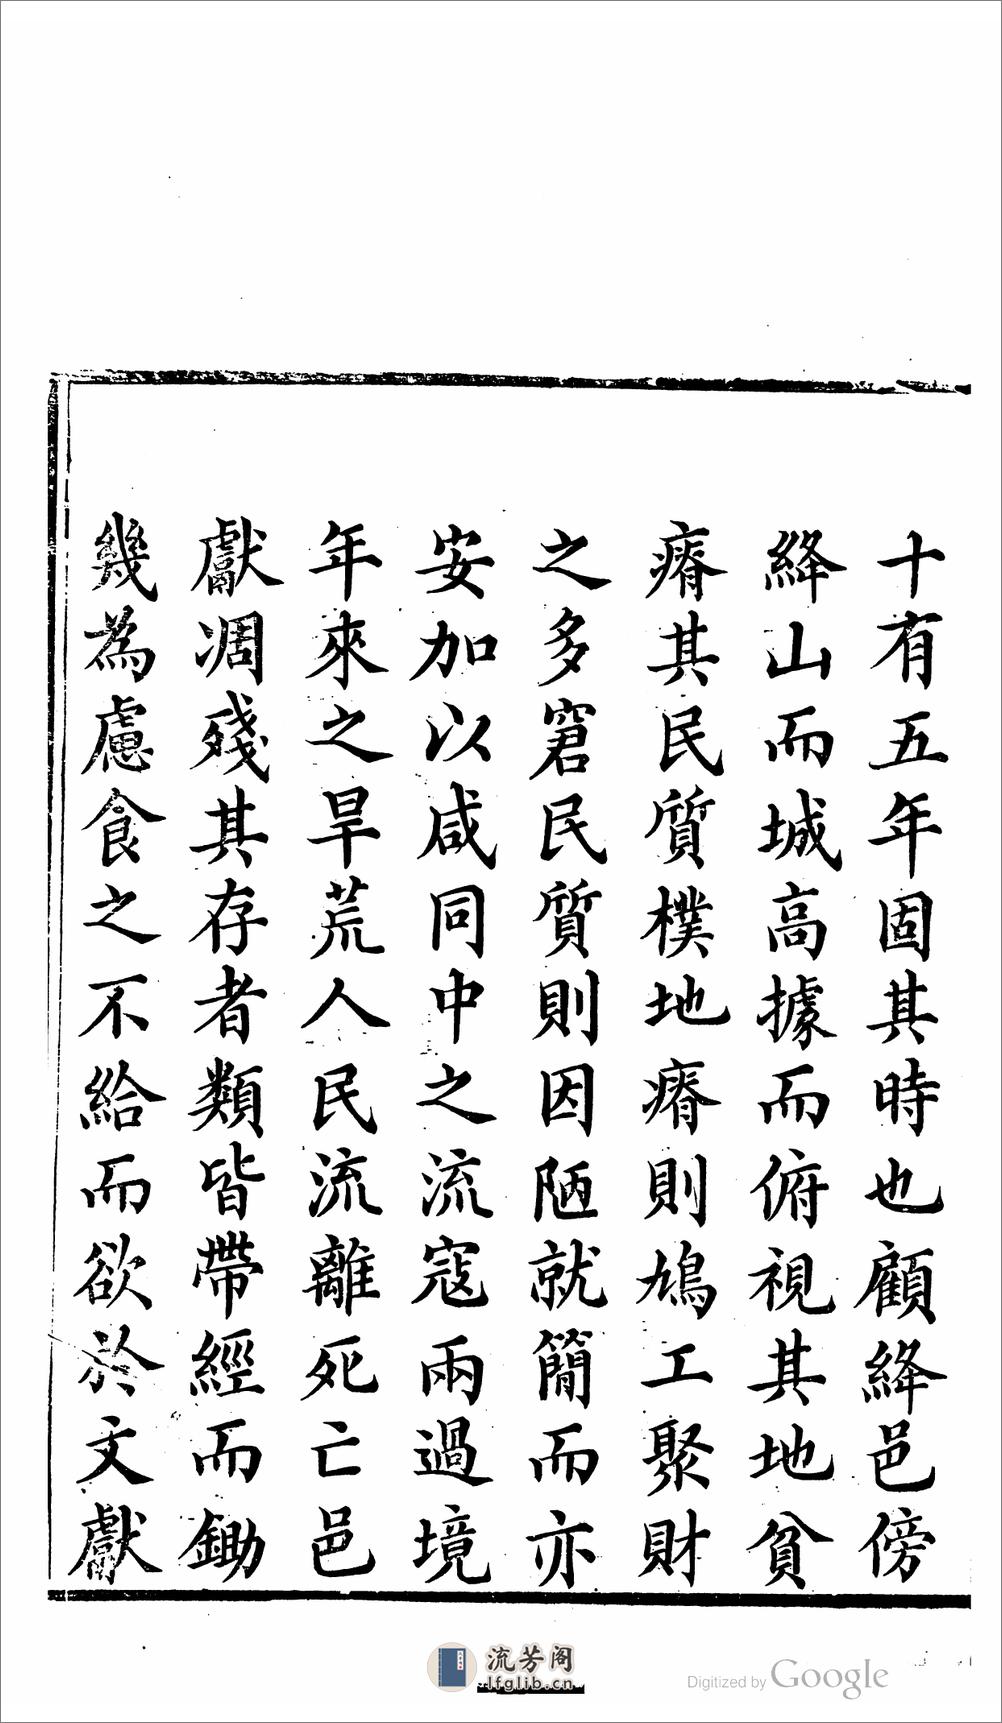 十有五年固其時也顧絳邑傍
絳山而城高據而俯視其地貧
瘠其民質樸地瘠則鳩工聚財
之多窘民質則因陋就簡而亦
安加以咸同中之流寇兩過境
年來之旱荒人民流離死亡邑
獻凋殘其存者類皆帶經而鋤
幾為慮食之不給而欲於文獻
流芳阁
lfglib.cn
Digitized by Google